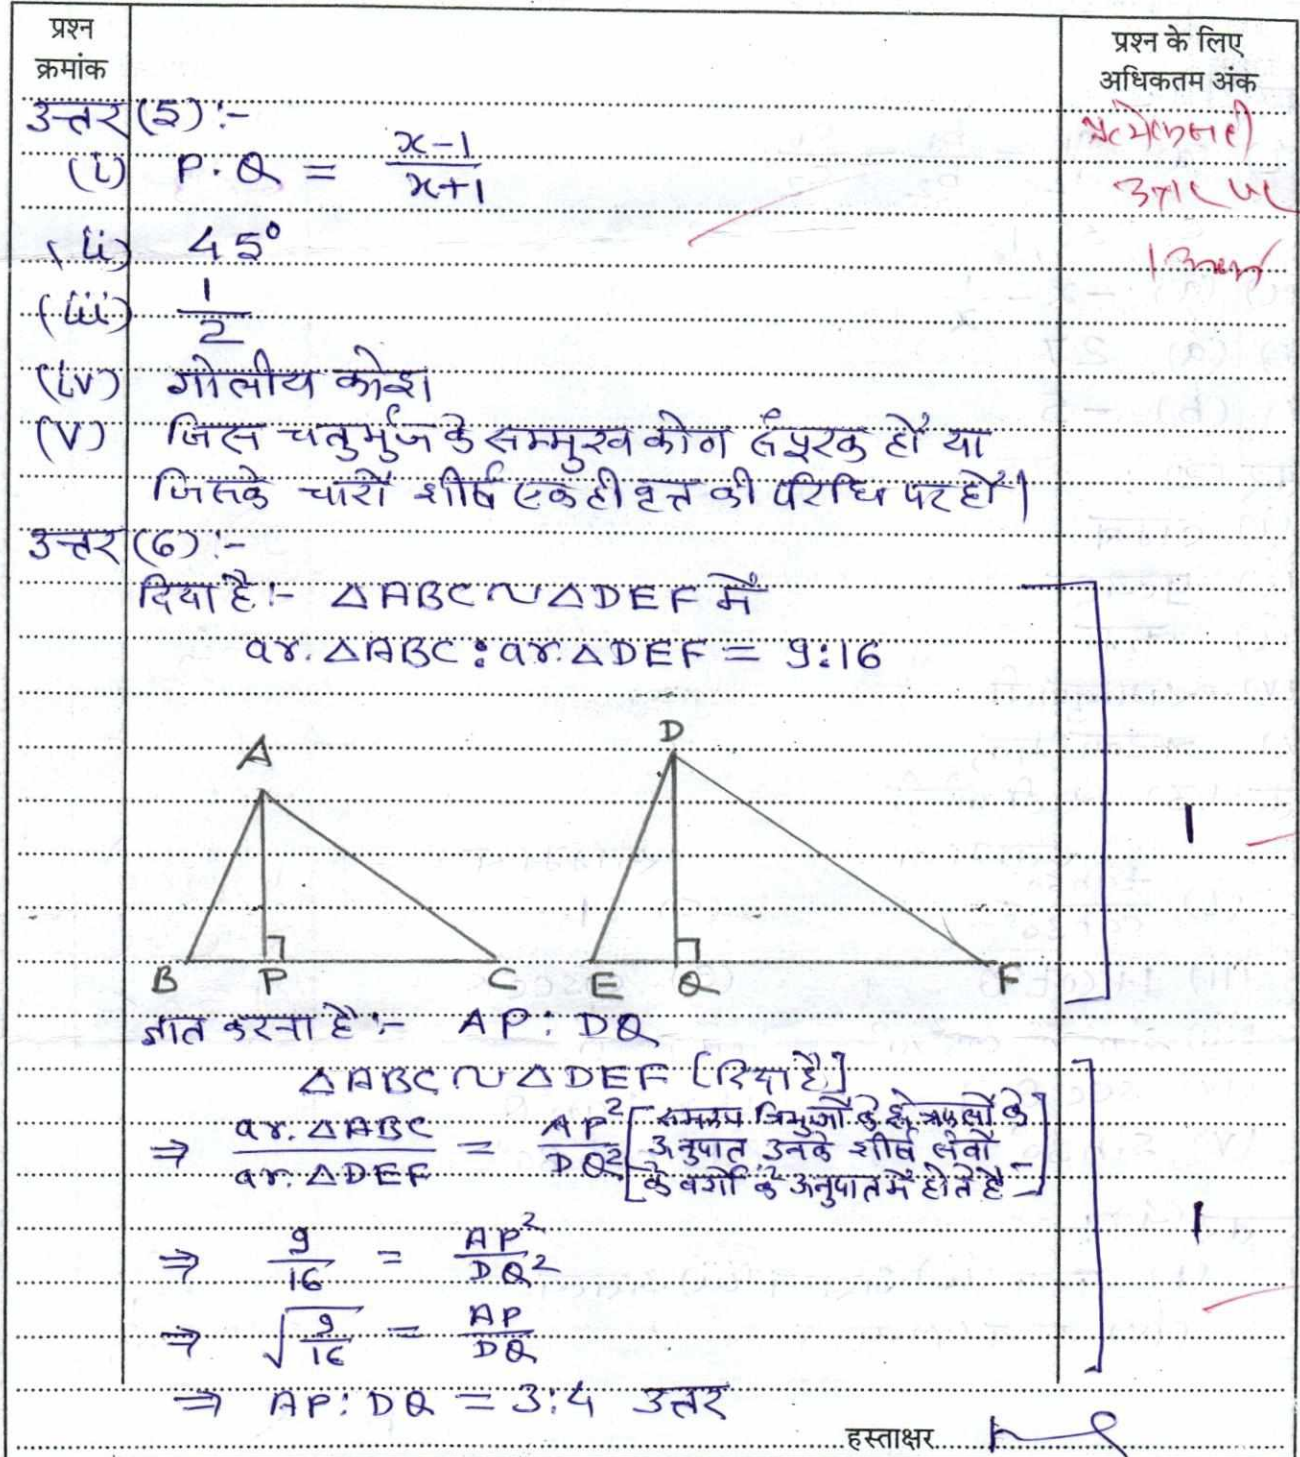 प्रश्न
क्रमांक
प्रश्न के लिए
अधिकतम अंक
उत्तर (5):-
(i) P.Q = x-1/x+1
उत्तर पर
(ii) 45°
1 अंक
(iii) 1/2
(iv) गोलीय कोश।
(V) जिस चतुर्भुज के सम्मुख कोण संपूरक हों या
जिसके चारों शीर्ष एक ही वृत्त की परिधि पर हों।
उत्तर (6):-
दिया है:- △ABC~△DEF में
ar.△ABC:ar.△DEF = 9:16
A
D
1
B P C E Q F
ज्ञात करना है:- AP: DQ
△ABC~△DEF [दिया है]
⇒ ar.△ABC/ar.△DEF = AP²/DQ² [समरूप त्रिभुजों के क्षेत्रफलों के
अनुपात उनके शीर्ष लंबों
के वर्गों के अनुपात में होते हैं]
1
⇒ 9/16 = AP²/DQ²
⇒ √9/16 = AP/DQ
⇒ AP:DQ = 3:4 उत्तर
हस्ताक्षर